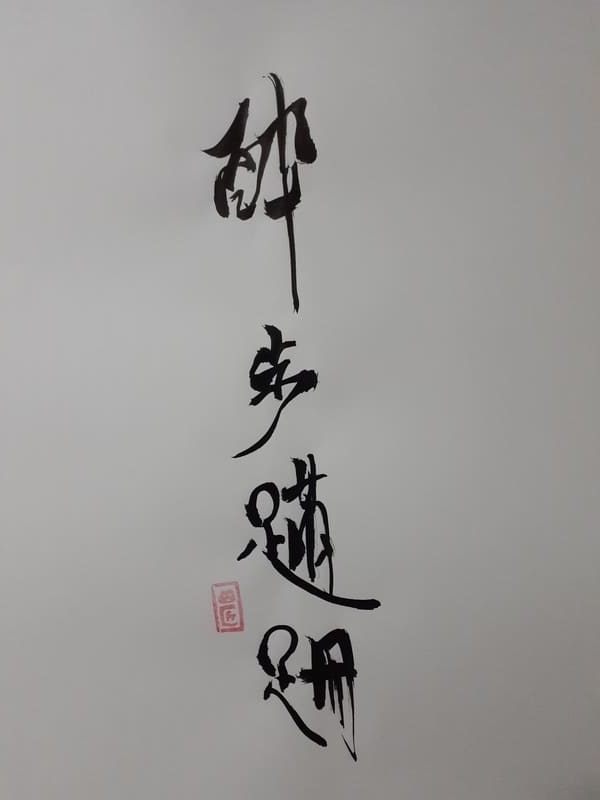 醉步蹣跚